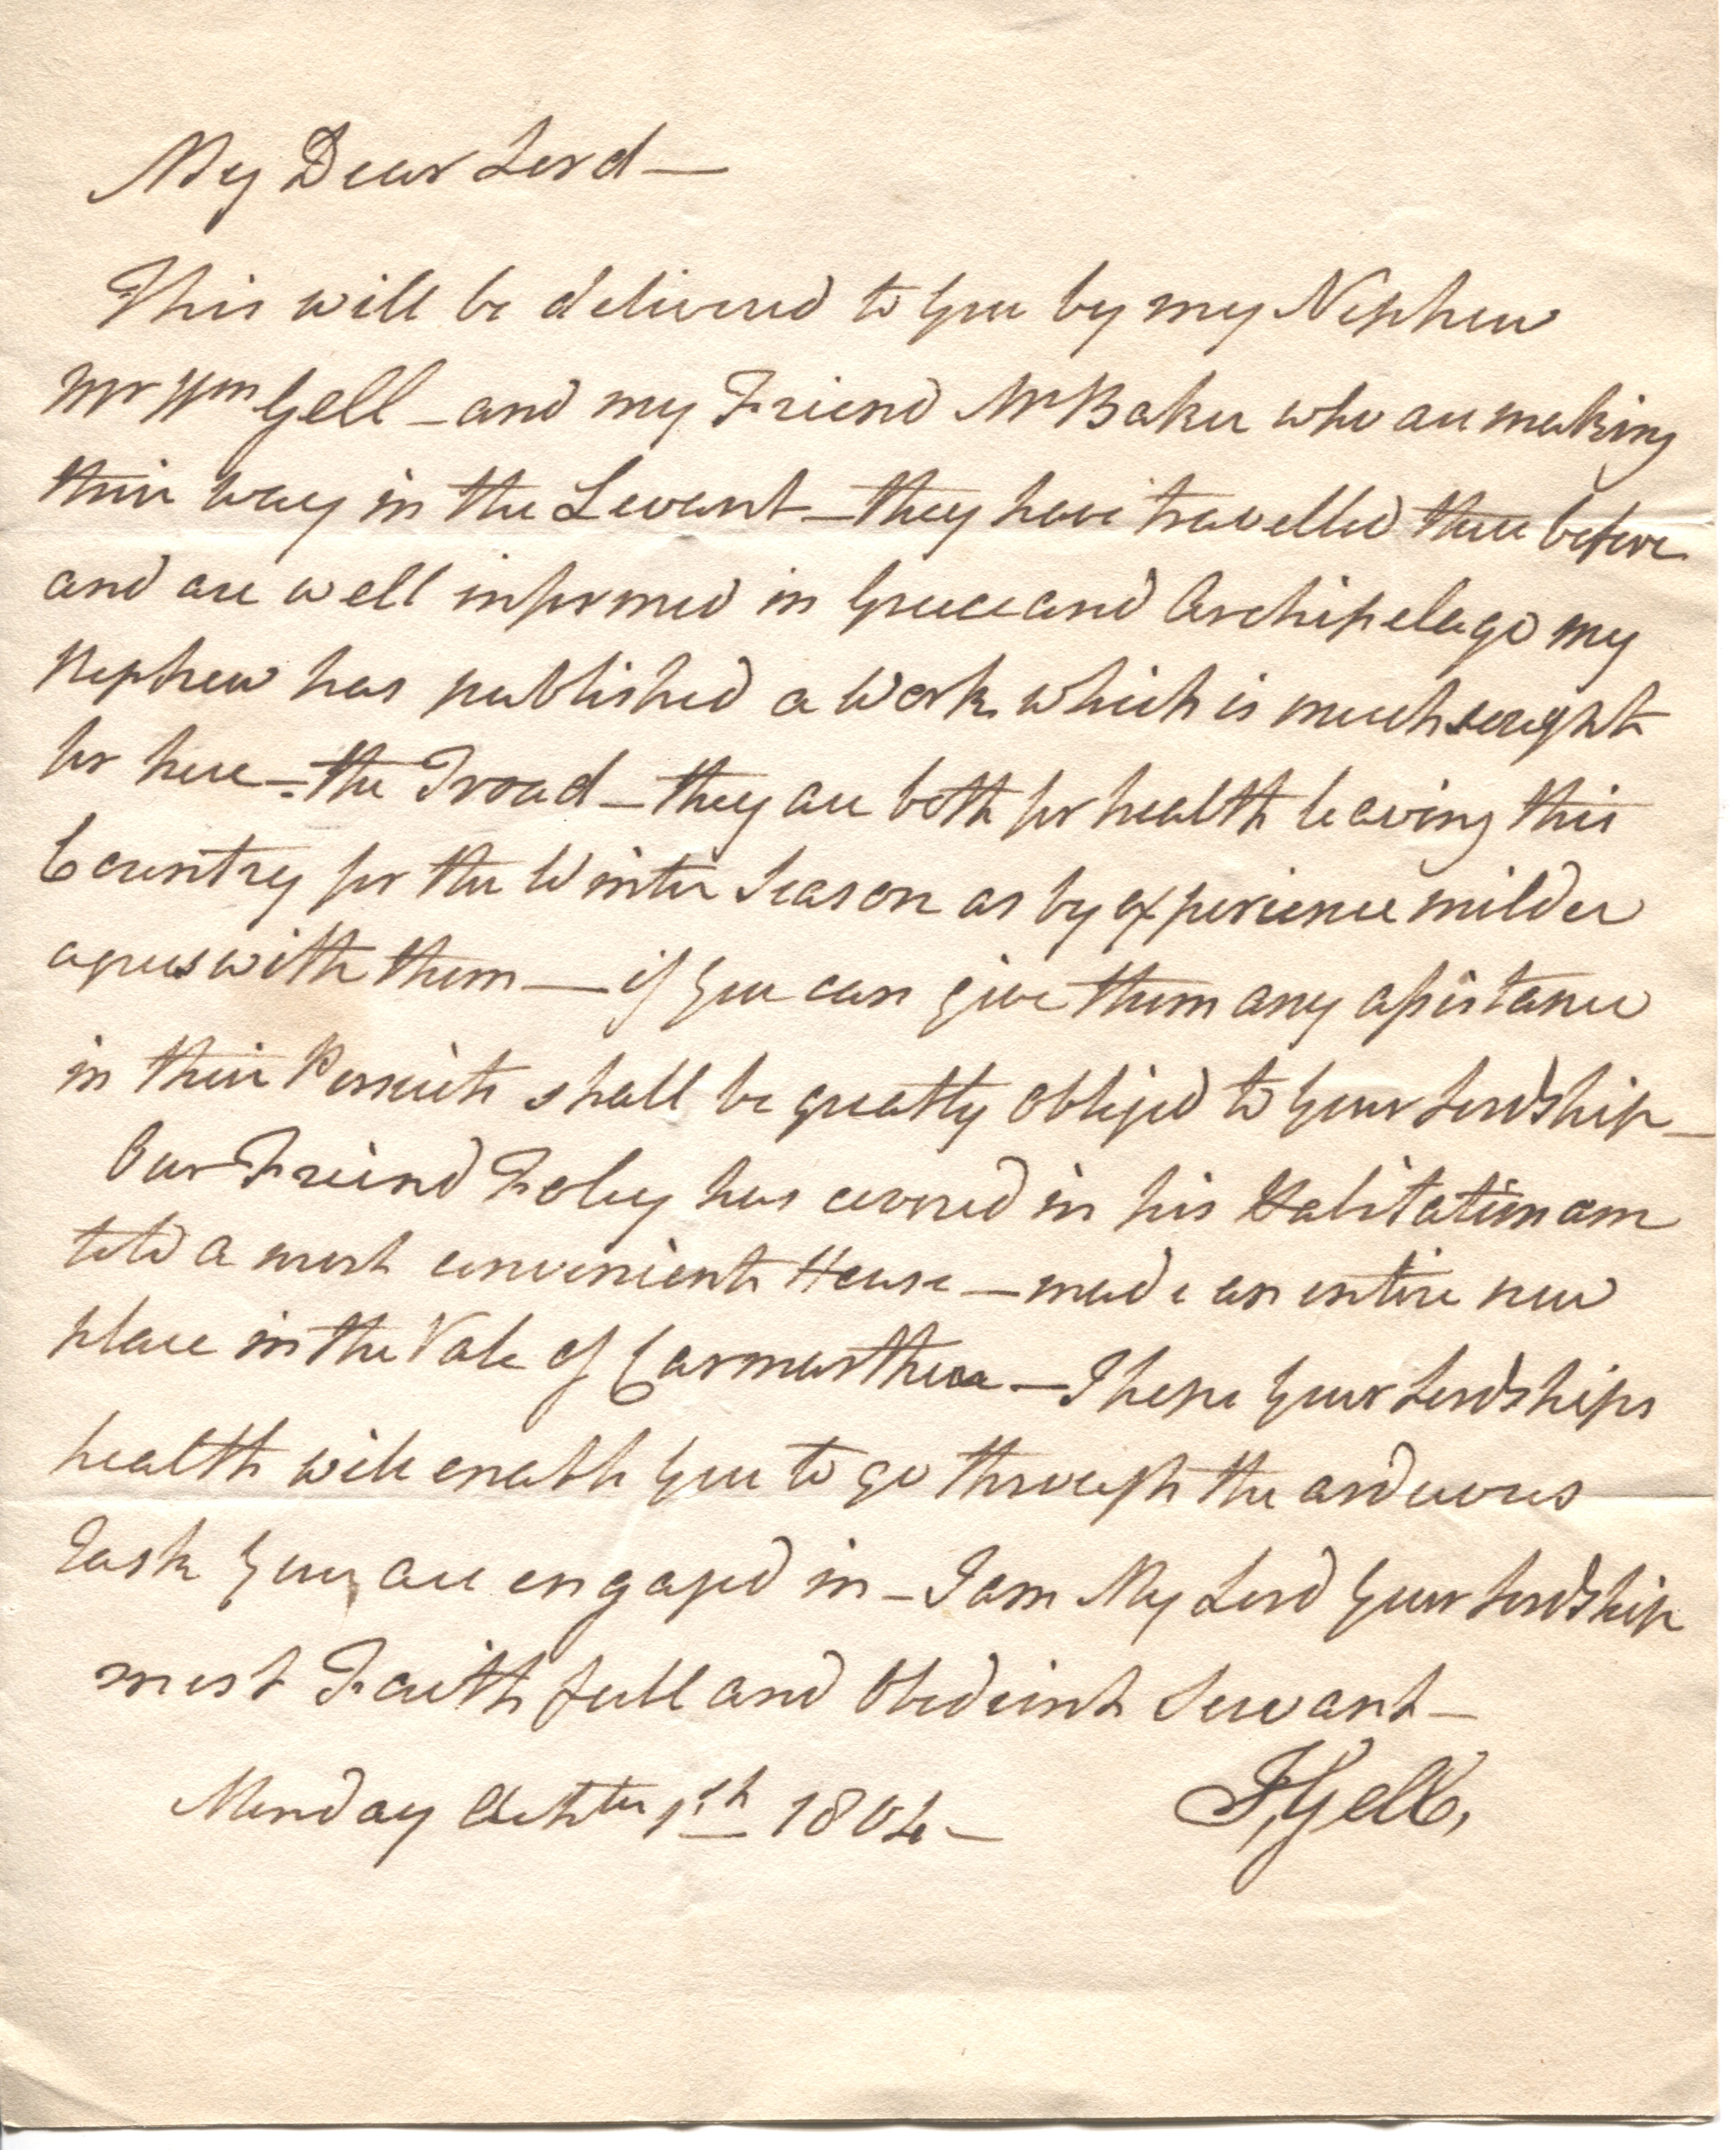 My Dear Lord —
This will be delivered to you by my Nephew
Mr Wm Gell – and my Friend Mr Baker who are making
their way in the Levant – they have travelled there before
and are well informed in Greece and Archipelago my
Nephew has published a Work which is much sought
for here – the Troad – they are both for health leaving this
Country for the Winter Season as by experience milder
agrees with them — if you can give them any assistance
in their Persuits shall be greatly obliged to your Lordship –
Our Freind Foley has covered in his Habitation am
told a most convenient House – made an entire new
place in the Vale of Carmarthen – I hope your Lordships
health will enable you to go through the arduous
Task you are engaged in – I am My Lord your Lordship
most Faithfull and Obedient Servant –
Monday 1st 1804 – J, Gell,